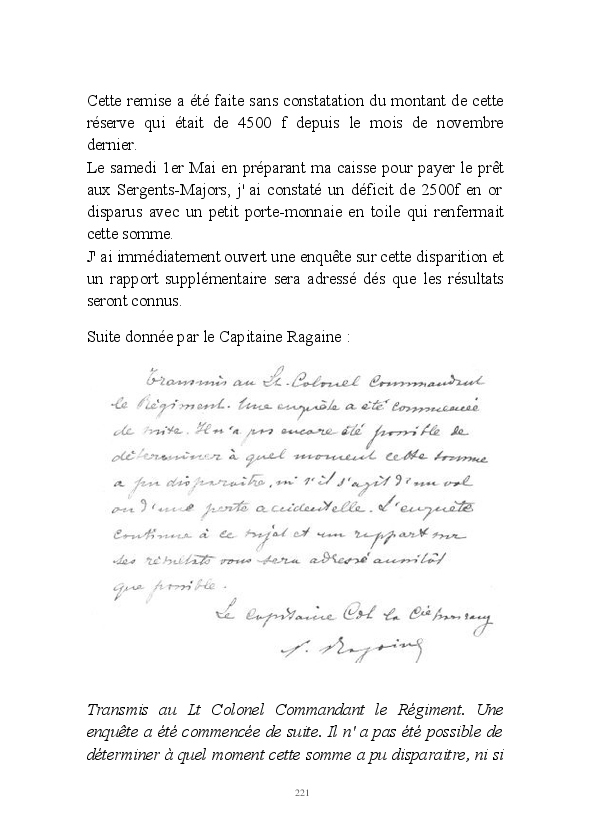 Cette remise a été faite sans constatation du montant de cette
réserve qui était de 4500 f depuis le mois de novembre
dernier.
Le samedi 1er Mai en préparant ma caisse pour payer le prêt
aux Sergents-Majors, j' ai constaté un déficit de 2500f en or
disparus avec un petit porte-monnaie en toile qui renfermait
cette somme.
J' ai immédiatement ouvert une enquête sur cette disparition et
un rapport supplémentaire sera adressé dés que les résultats
seront connus.
Suite donnée par le Capitaine Ragaine :
Transmis au Lt-Colonel Commandant
le Régiment. Une enquête a été commencée
de suite. Il n'a pas encore été possible de
déterminer à quel moment cette somme
a pu disparaitre, ni s'il s'agit d'un vol
ou d'une perte accidentelle. L'enquête
continue à ce sujet et un rapport sur
ses résultats vous sera adressé aussitôt
que possible.
Le Capitaine Cdt la Cie
Ragaine
Transmis au Lt Colonel Commandant le Régiment. Une
enquête a été commencée de suite. Il n' a pas été possible de
déterminer à quel moment cette somme a pu disparaitre, ni si
221